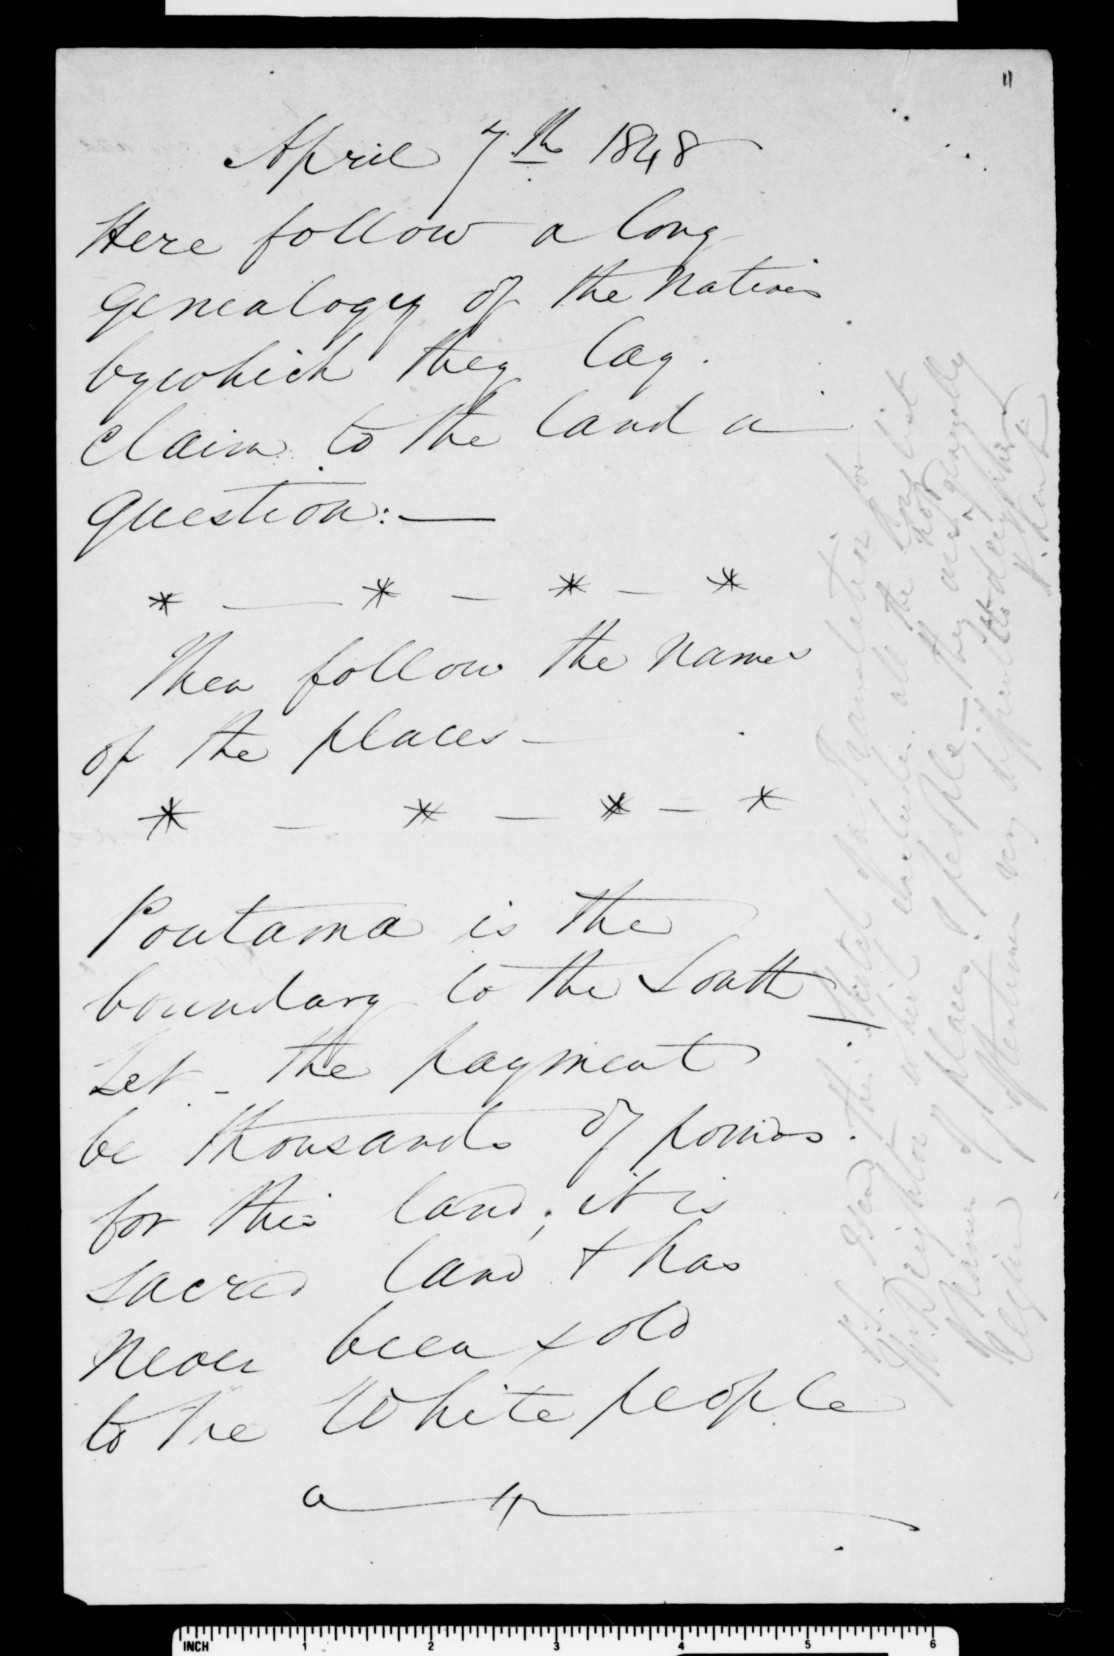 11
April 7th 1848
Here follow a long
genealogy of the Natives
by which they lay
claim to the land in
question:—
* — * — * — *
Then follow the names
of the places —
* — * — * — *
Poutama is the
boundary to the South
Let - the payment
be thousands of pounds
for this land; it is
sacred land & has
never been sold
to the White people
translation for
all the long list
of places & people — they are not generally
very difficult to decypher
INCH 1 2 3 4 5 6